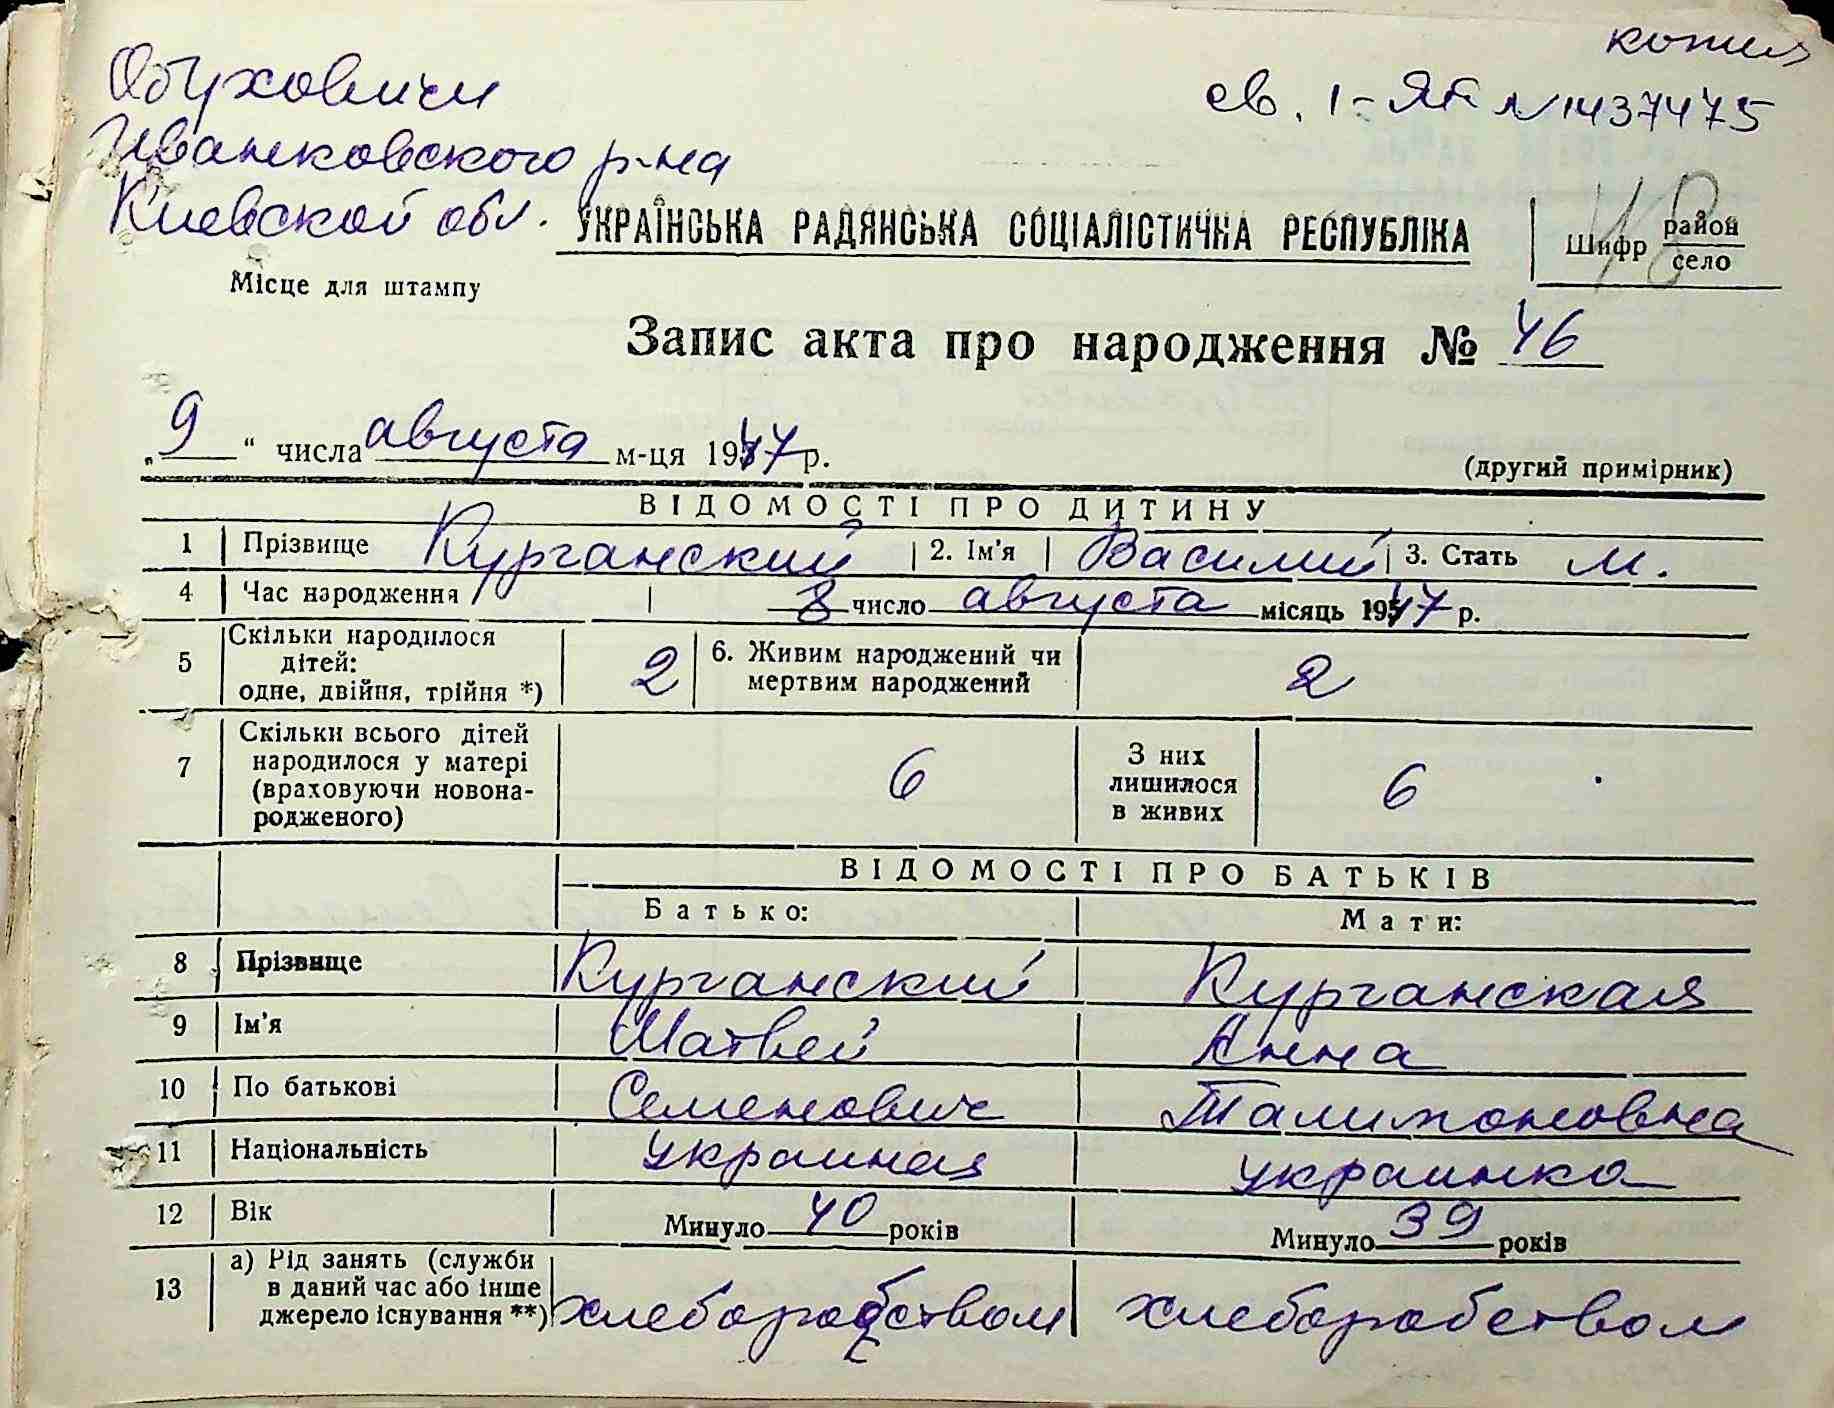 копия
Обуховичи
св. 1-ЯК № 1437475
Иванковского р-на
Киевской обл.
УКРАЇНСЬКА РАДЯНСЬКА СОЦІАЛІСТИЧНА РЕСПУБЛІКА
Шифр район село
48
Місце для штампу
Запис акта про народження № 46
„9“ числа августа м-ця 1947 р.
(другий примірник)
ВІДОМОСТІ ПРО ДИТИНУ
1 Прізвище Курганский 2. Ім'я Василий 3. Стать м.
4 Час народження 8 число августа місяць 1947 р.
5 Скільки народилося дітей: одне, двійня, трійня *) 2 6. Живим народжений чи мертвим народжений 2
7 Скільки всього дітей народилося у матері (враховуючи новона-родженого) 6 З них лишилося в живих 6
ВІДОМОСТІ ПРО БАТЬКІВ
Батько: Мати:
8 Прізвище Курганский Курганская
9 Ім'я Матвей Анна
10 По батькові Семенович
11 Національність украинец украинка
12 Вік Минуло 40 років Минуло 39 років
13 а) Рід занять (служби в даний час або інше джерело існування **) хлеборобством хлеборобством